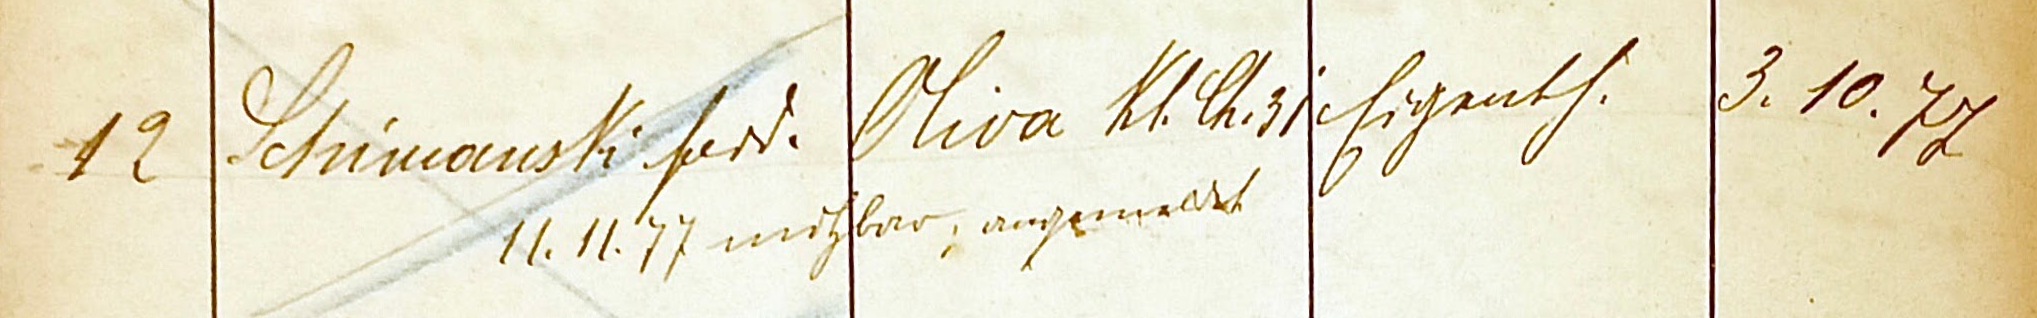 12 Schimanski ferd. Oliva Kl. Ch. 31 Eigenth. 3. 10. 77
11. 11. 77 nutzbar, angemeldet